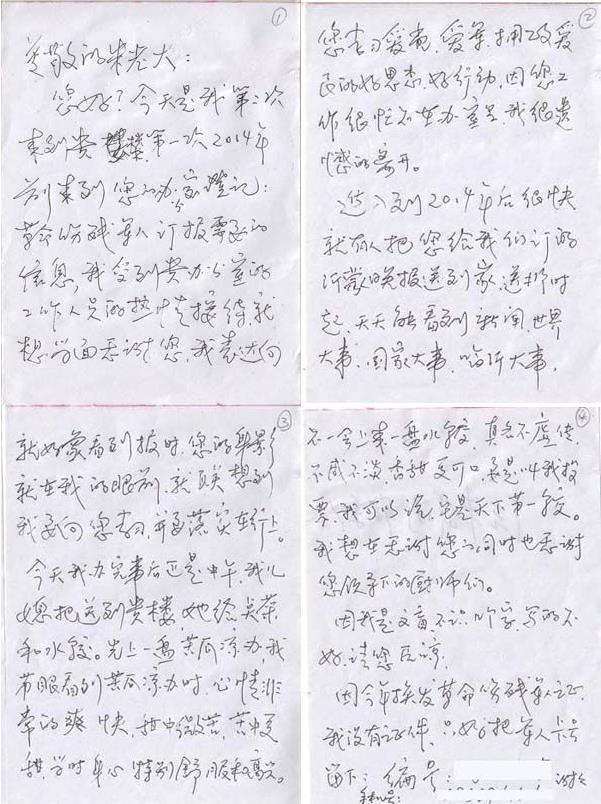 ①
尊敬的朱老大:
您好?今天是我第二次
来到贵楼,第一次2014年
前来到您的办公室登记:
革命伤残军人订报需要的
信息,我受到贵办公室的
工作人员的热情接待,就
想当面感谢您,我表达向
②
您学习爱党、爱军、拥政爱
民的好思想、好行动,因您工
作很忙不在办室,我很遗
憾的离开。
进入到2014年后很快
就有人把您给我们订的
沂蒙晚报送到家,送报时
起,天天能看到新闻,世界
大事、国家大事、临沂大事,
③
就好象看到报时,您的身影
就在我的眼前,就联想到
我要向您学习,并要落实在行上。
今天我办完事后正是中午,我儿
媳把送到贵楼,她给点菜
和水饺。先上一盘苦瓜凉办,我
带眼看到苦瓜凉办时,心情非
常的爽快,甜中微苦,苦中更
甜,当时身心特别舒服和高兴。
④
不一会上来一盘水饺,真名不虚传,
不咸不淡,香甜可口,要是叫我投
票,我可以说,它是天下第一饺。
我想在感谢您的同时也感谢
您领导下的厨师们。
因我是文盲,不识几个字,写的不
好,请您原谅。
因今年换发革命伤残军人证,
我没有证件,只好把军人卡号
留下:编号:
手机号: 谢谢